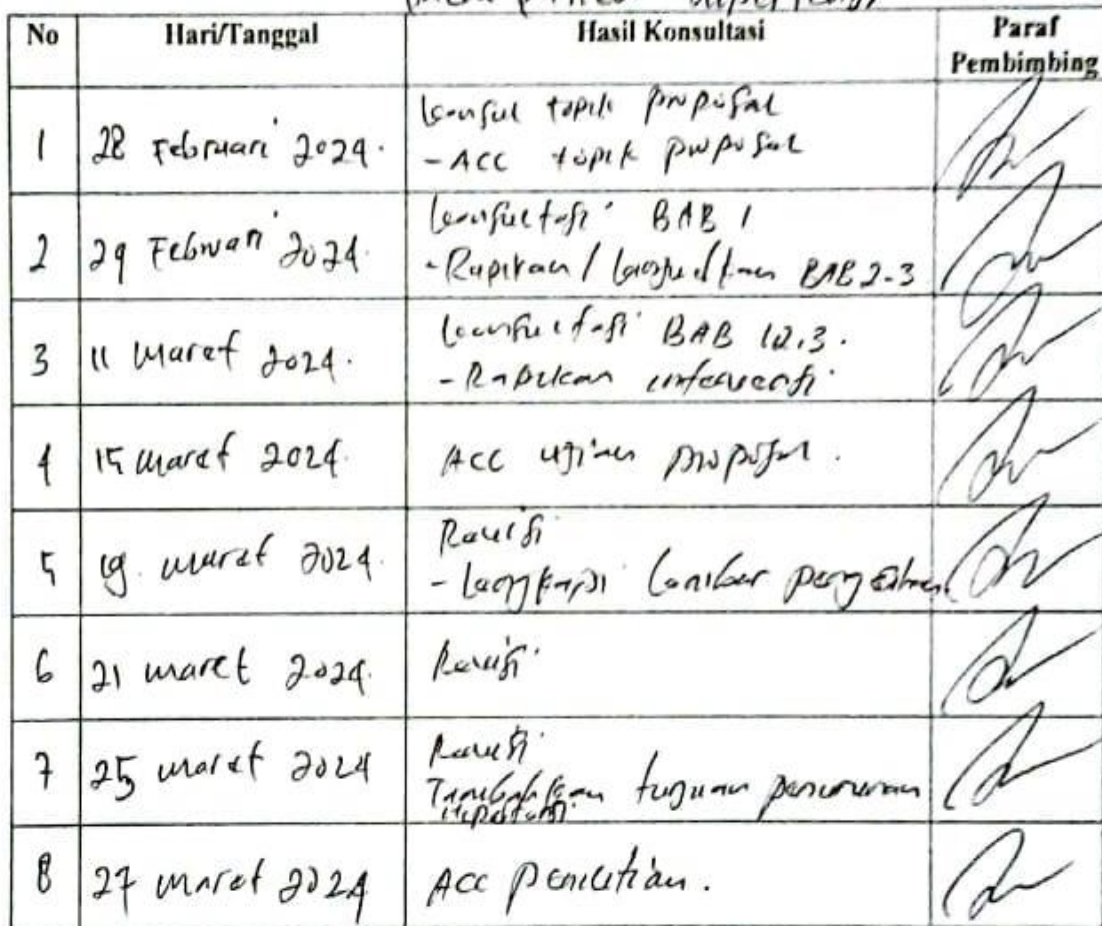 No Hari/Tanggal Hasil Konsultasi Paraf Pembimbing
1 28 Februari 2024. Konsul topik proposal
- ACC topik proposal
2 29 Februari 2024. Konsultasi BAB 1
- Rapikan / lanjutkan BAB 2-3
3 11 Maret 2024. Konsultasi BAB 1,2,3.
- Rapikan intervensi
4 15 Maret 2024. ACC ujian proposal.
5 19 Maret 2024. Revisi
- Lengkapi lembar pengesahan
6 21 Maret 2024. Revisi
7 25 Maret 2024 Revisi
Tambahkan tujuan penurunan
hipertensi
8 27 Maret 2024 ACC penelitian.